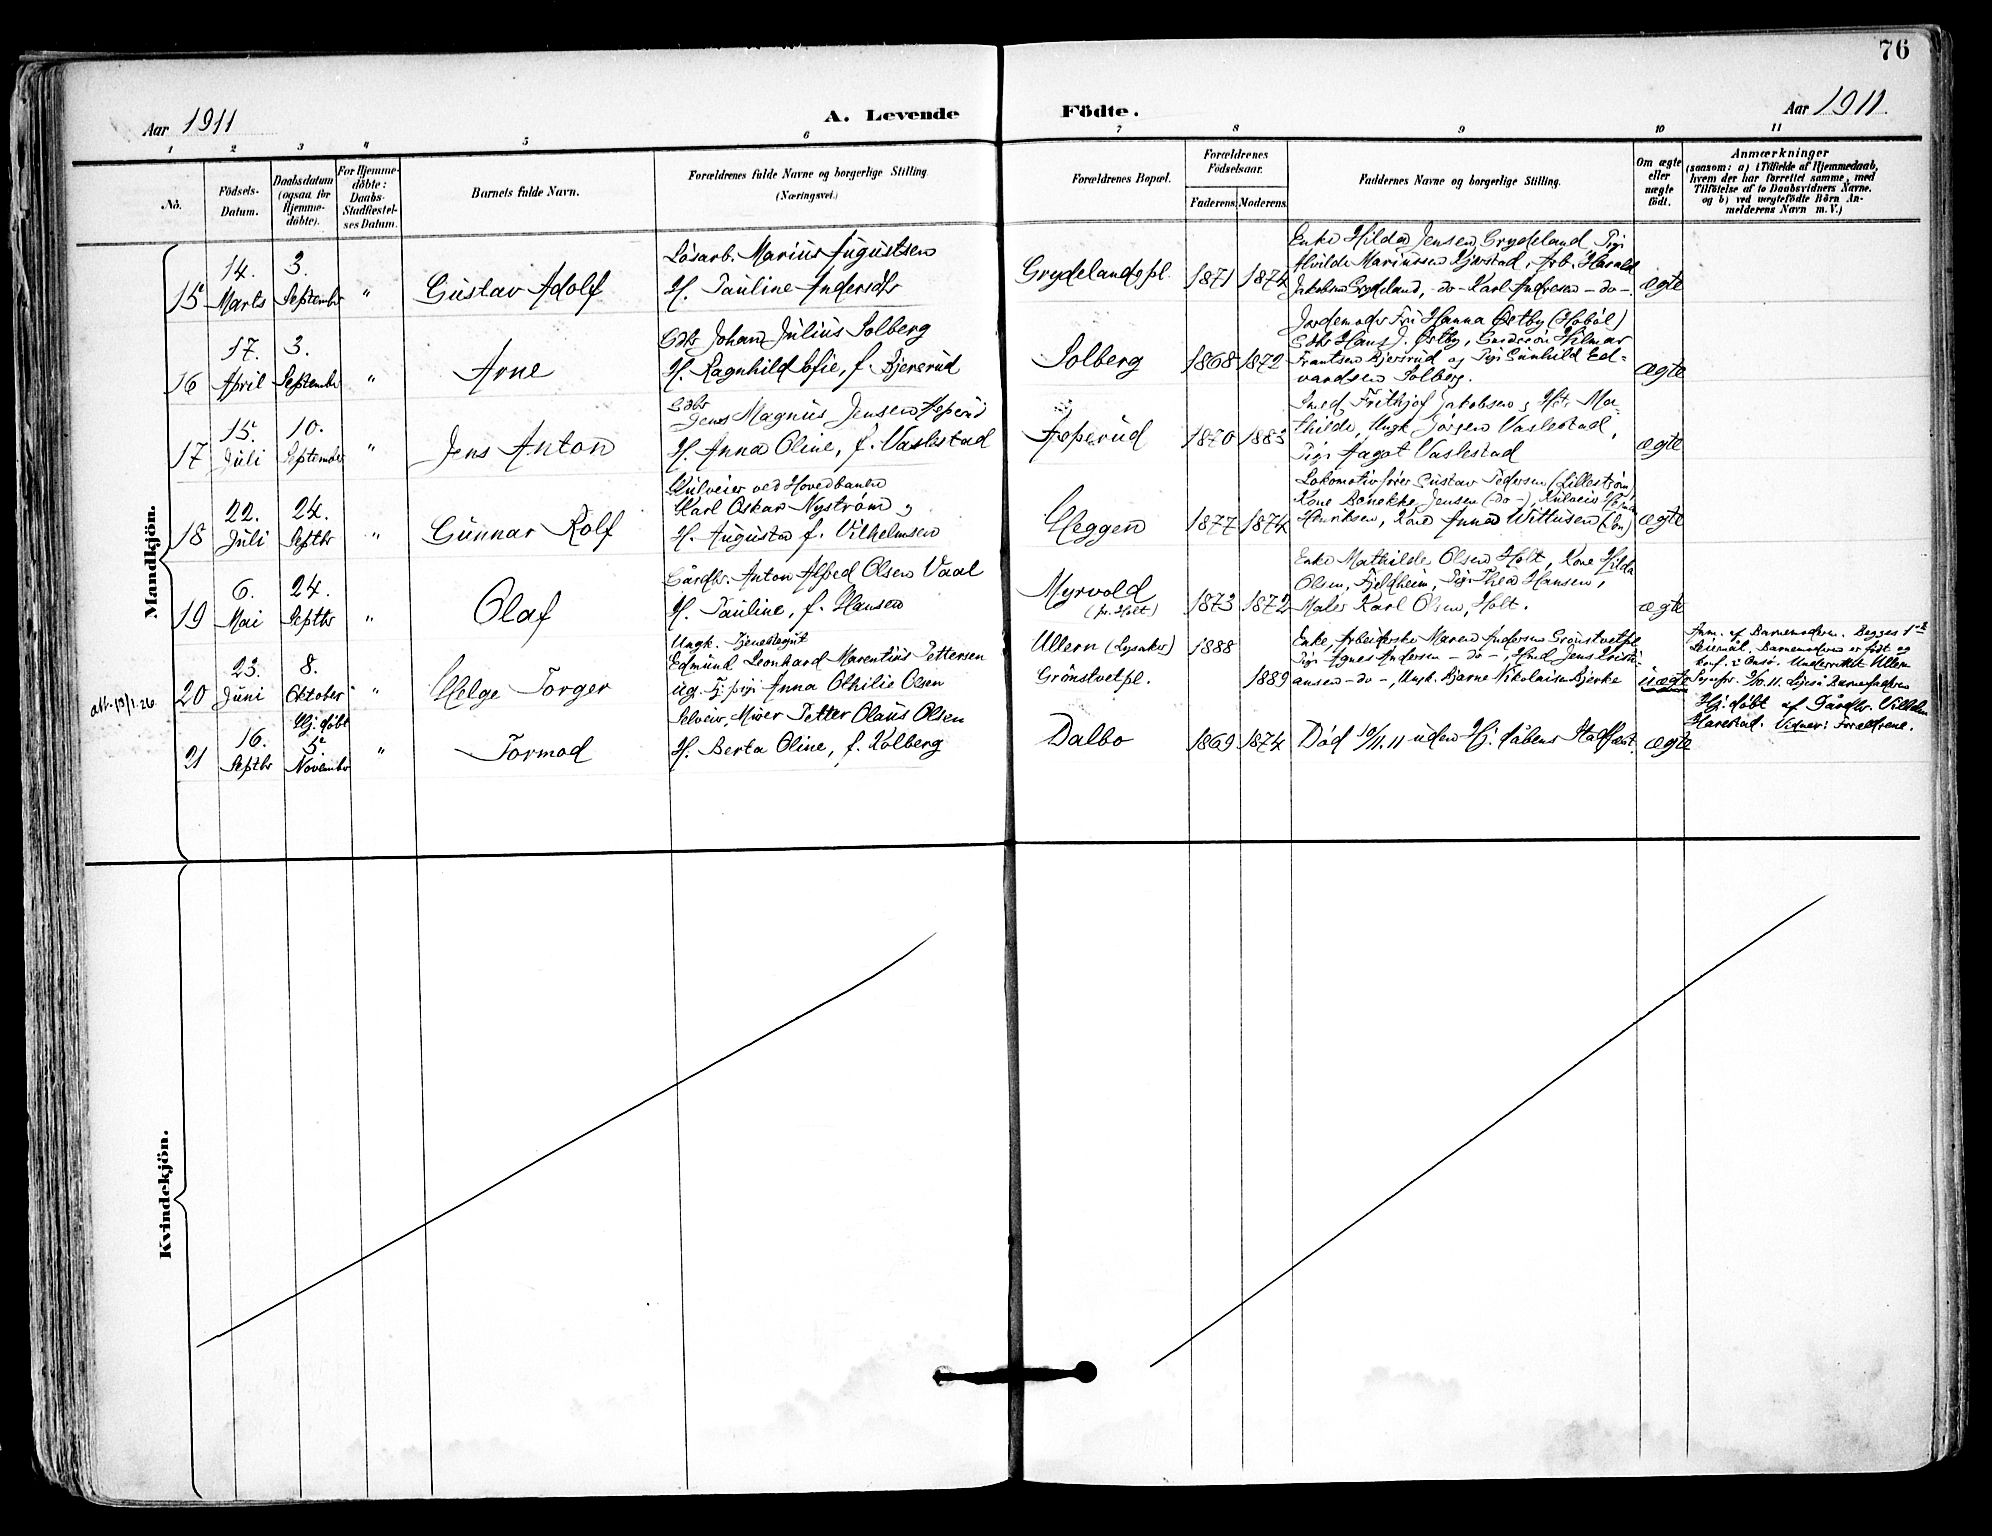 76
Aar 1911
A. Levende Födte.
Aar 1911.
1 2 3 4 5 6 7 8 9 10 11
No.
Födsels-
Datum.
Daabsdatum
(ogsaa for
Hjemme-
döbte).
For Hjemme-
döbte:
Daabs-
Stadfæstel-
ses Datum.
Barnets fulde Navn.
Forældrenes fulde Navne og borgerlige Stilling
(Næringsvei.)
Forældrenes Bopæl.
Forældrenes
Födselsaar.
Faderens.
Moderens.
Faddernes Navne og borgerlige Stilling.
Om ægte
eller
uægte
födt.
Anmærkninger
(saasom: a) i Tilfælde af Hjemmedaab,
hvem der har forrettet samme, med
Tilföielse af to Daabsvidners Navne.
og b) ved uægtefödte Börn An-
melderens Navn m. V.)
Mandkjön.
15
14.
Marts
3.
September
"
Gustav Adolf
Løsarb. Marius Augustsen
H. Pauline Andersdtr
Grydelandspl.
1871
1874
Enke Hilda Jensen Grydeland Pige
Alvilde Mariussen Kjærstad, Arb. Harald
Jakobsen Grydeland, do- Karl Andresen - do -.
ægte
16
17.
April
3.
September
"
Arne
Gdbr Johan Julius Solberg
H. Ragnhild Sofie, f. Bjererud
Solberg
1868
1872
Jordemoder Fru Hanna Østby (Hobøl)
Gdbr Hans J. Østby, Hilmar
Frantsen Bjererud og Pige Gunhild Ed-
vardsen Solberg.
ægte
17
15.
Juli
10.
September
"
Jens Anton
Gdbr
Jens Magnus Jensen
H. Anna Oline, f. Vaslestad
1870
1883
Smed Frithjof Jakobsen, Hst. Ma-
thilde, Ungk Jörgen Vaslestad,
Pige Aagot Vaslestad
ægte
18
22.
Juli
24.
Septbr
"
Gunnar Rolf
ved Hovedbanen
Karl Oskar Nystrøm,
H. Augusta f. Vilhelmsen
Heggen
1877
1874
Lokomotivfører Gustav Pedersen (Lillestrøm)
Kone Jensen (do -),
Henriksen, Kone Anna Wittusen
ægte
19
6.
Mai
24.
Septbr
"
Olaf
Gårdbr. Anton Alfred Olsen Vaal
H. Pauline, f. Hansen
Myrvold
(pr. Holt)
1873
1872
Enke Mathilde Olsen Holt, Kone Hilda
Olsen, Fjeldheim, Pige Thea Hansen,
Maler Karl Olsen, Holt.
ægte
att. 13/1.26
20
23.
Juni
8.
Oktober
"
Helge Torger
Ungk. Tjenestegut
Edmund Leonhard Marentius Pettersen
ug. Tj. pige Anna Othilie Olsen
Ullern (Lysaker)
Grönstvetpl.
1888
1889
Enke, Arbeiderske Maren Andersen Grönstvetpl
Pige Agnes Andersen - do -, Jens Kristi-
ansen - do -, Ungk. Bjarne Nikolaisen Bjerke
uægte
Anm. af Barnemoderen. Begges 1ste
Leiermål. Barnemoderen er født og
konf. i Onsø. Underrettet Ullern
Barnefaderen
21
16.
Septbr
Hj. døbt
5te
November
"
Tormod
Selveier, Murer Petter Olaus Olsen
H. Berta Oline, f. Kolberg
Dalbo
1869
1874
Død 10/11.11 uden Hj. dåbens Stadfæst.
ægte
Hj. døbt af Gårdbr. Vilhelm
Harestad. Vidner: Forældrene.
Kvindekjön.